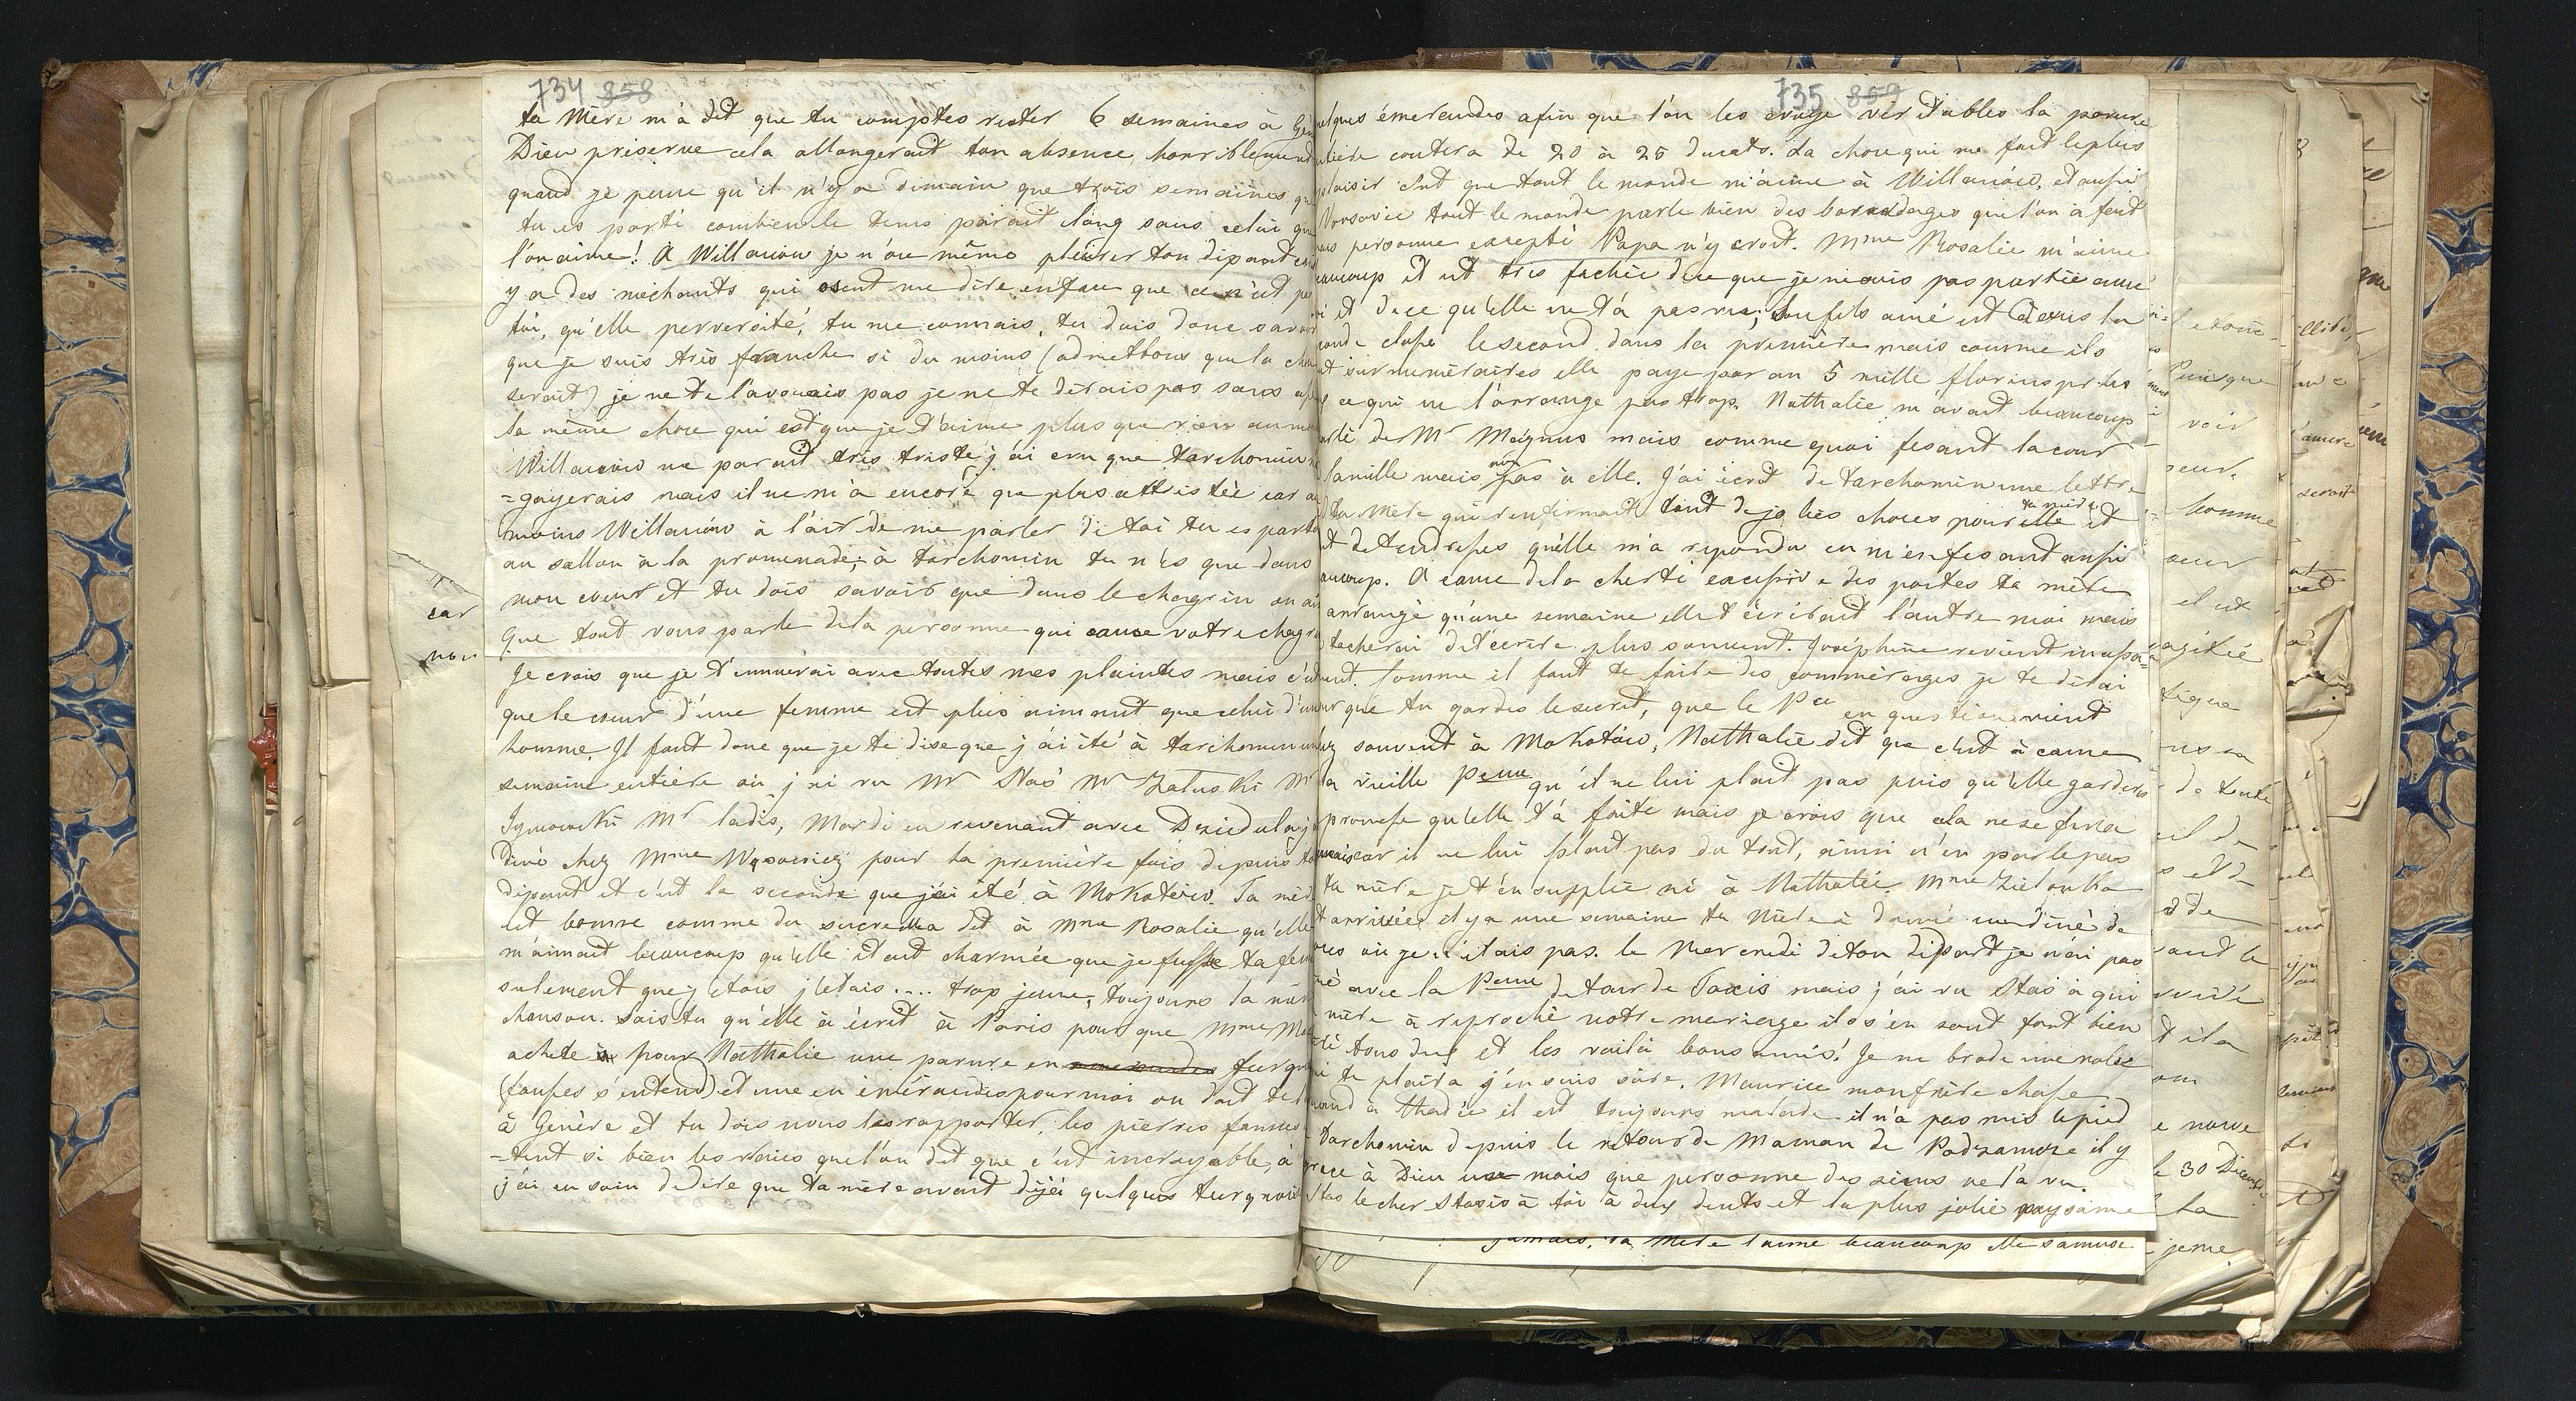 734 858
ta Mère m'a dit que tu comptes rester 6 semaines à Gen
Dieu préserve cela allongerait ton absence horriblement
quand je pense qu'il n'y a demain que trois semaines que
tu es parti combien le tems parait long sans celui que
l'on aime! A Willanow je n'ose même pleurer ton départ car
y a des méchants qui osent me dire en face que ce n'est pas
toi, qu'elle perversité, tu me connais, tu dois donc savoir
que je suis très franche si du moins (admettons que la chose
serait) je ne te l'avouais pas je ne te dirais pas sans
la même chose qui est que je t'aime plus que rien au monde
Willanow me parait très triste j'ai cru que tarchomin
=gayerais mais il ne m'a encore que plus attristée car au
moins Willanow à l'air de me parler de toi tu es partout
au sallon à la promenade; à tarchomin tu n'es que dans
mon coeur et tu dois savoir que dans le chagrin on
que tout vous parle de la personne qui cause votre chagrin
Je crois que je t'ennuierai avec toutes mes plaintes mais c'est
que le coeur d'une femme est plus aimant que celui d'un
homme. Il faut donc que je te dise que j'ai été à tarchomin une
semaine entière où j'ai vu Mr Stas Mr Zaluski Mr
Mr ladis, Mardi en revenant avec Dziedula j'
diné chez Mme Wąsowicz pour la première fois depuis ton
départ et c'est la seconde que j'ai été à Mokotow. Ta mère
est bonne comme du sucre elle a dit à Mme Rosalie qu'elle
m'aimait beaucoup qu'elle était charmée que je fusse ta femme
sulement que j'etois j'étais .... trop jeune, toujours la même
chanson. Sais tu qu'elle à écrit à Paris pour que Mme
achete pour Nathalie une parure en turquoises
(fausses s'entend) et une en émeraudes pour moi on doit te
à Genève et tu dois nous les rapporter, les pierres fausses
=tent si bien les vraies que l'on dit que c'est incroyable, à
j'ai eu soin de dire que ta mère avait déjà quelques turquoises
car
non
735 859
quelques émeraudes afin que l'on les croye véritables la parure
entière coutera de 20 à 25 ducats. La chose qui me fait le plus
plaisir c'est que tout le monde m'aime à Willanow, et aussi
Varsovie tout le monde parle bien des bavardages que l'on à fait
mais personne excepté Papa n'y croit. Mme Rosalie m'aime
beaucoup et est très fachée de ce que je ne suis pas partie avec
toi et de ce qu'elle ne t'a pas vu; Son fils ainé est dans la
seconde classe le second dans la première mais comme ils
sont surnuméraires elle paye par an 5 mille florins pr les
ce qui ne l'arrange pas trop. Nathalie m'avait beaucoup
parlé de Mr Magnus mais comme quoi fesant la cour
famille mais non pas à elle. J'ai écrit de tarchomin une lettre
à ta Mère qui renfermait tant de jolies choses pour elle ta mère et
et de tendresses qu'elle m'a repondu en m'en fesant aussi
beaucoup. A cause de la cherté excessive des postes ta mère
arrangé qu'une semaine elle t'écrirait l'autre moi mais
tacherai de t'écrire plus souvent. Joséphine revient incessa=
ment. Comme il faut te faire des commérages je te dirai
pour que tu gardes le secret, que le Pce en question vient
assez souvent à Mokotow, Nathalie dit que c'est à cause
la vieille Pcesse qu'il ne lui plait pas puis qu'elle gardera
promesse qu'elle t'à faite mais je crois que cela ne se fera
jamais car il ne lui plait pas du tout, ainsi n'en parle pas
ta mère je t'en supplie ni à Nathalie. Mme Zielonka
est arrivée il y a une semaine ta Mère à donné un diné de
où je n'étais pas. le Mercredi de ton départ je n'ai pas
diné avec la Pcesse de tour de Taxis mais j'ai vu Stas à qui
mère à reproché notre mariage ils s'en sont fort bien
tous deux et les voilà bons amis! Je me brode une robe
qui te plaira j'en suis sûre. Maurice mon frère chasse
quand à thadée il est toujours malade il n'a pas mis le pied
tarchomin depuis le retour de Maman de Podzamcze il y
grace à Dieu un mois que personne des siens ne l'a vu.
Stas le cher Stasio à toi à deux dents et la plus jolie paysanne
jamais, ta Mère l'aime beaucoup elle s'amuse
Puisque
voir
homme
agitée
de toute
le 30 Decembre
la
jeune
serait